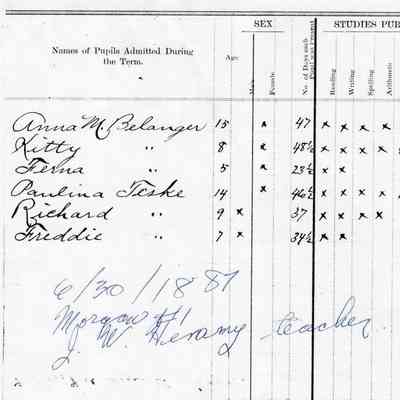 SEX STUDIES PU
Names of Pupils Admitted During
the Term.
Age
Male
Female
No. of Days each
Pupil was Present
Reading
Writing
Spelling
Arithmetic
Anna M. Belanger 15 x 47 x x x x
Kitty " 8 x 48½ x x x x
Ferna " 5 x 23½ x x
Paulina Teske 14 x 46½ x x x x
Richard " 9 x 37 x x x x
Freddie " 7 x 34½ x x
6/30/1887
Morgan #1
J. W. teacher